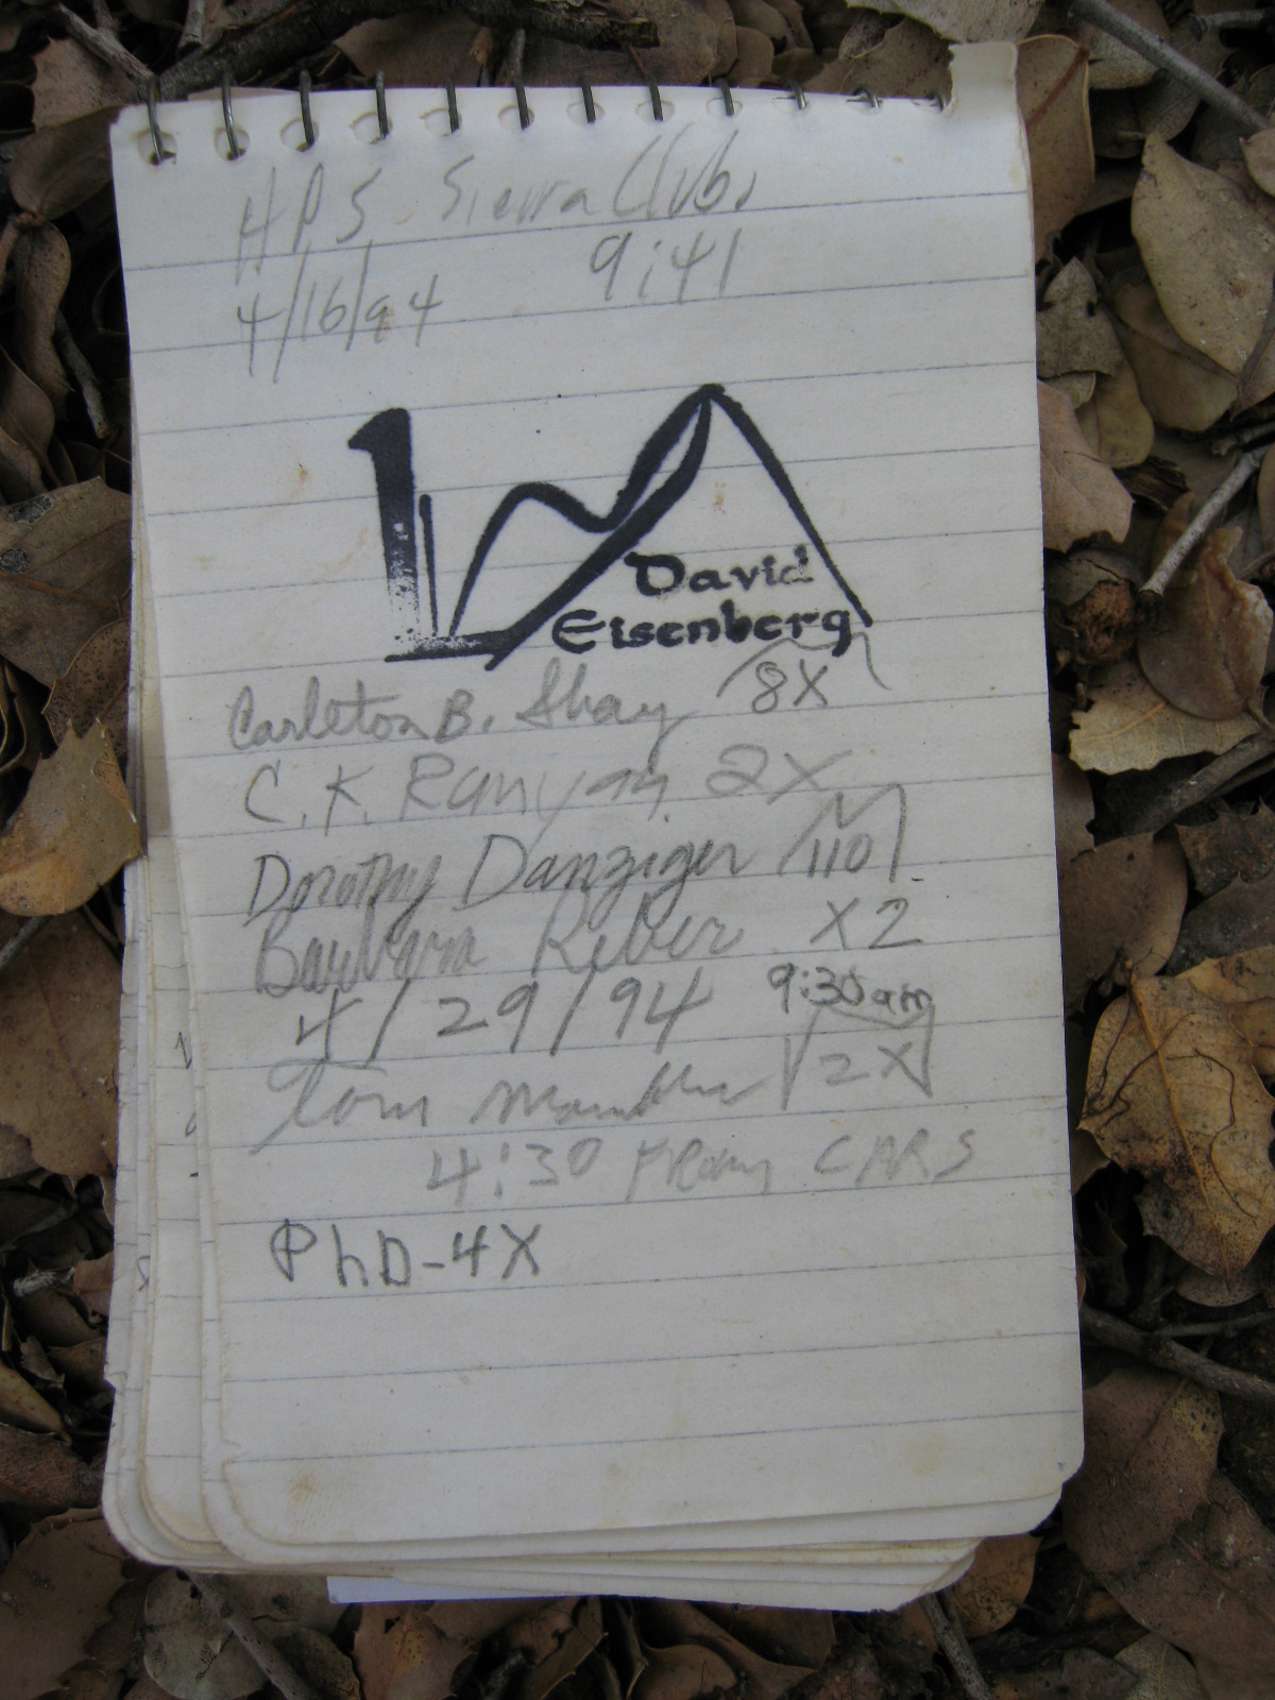 HPS Sierra Club
9:41
4/16/94
David
Eisenberg
Carleton B. Shay 8X
C. K. Runyan 2X
Dorothy Danziger 110
Barbara Reber X2
4/29/94 9:30 am
Tom 2X
4:30 FROM CARS
PhD-4X